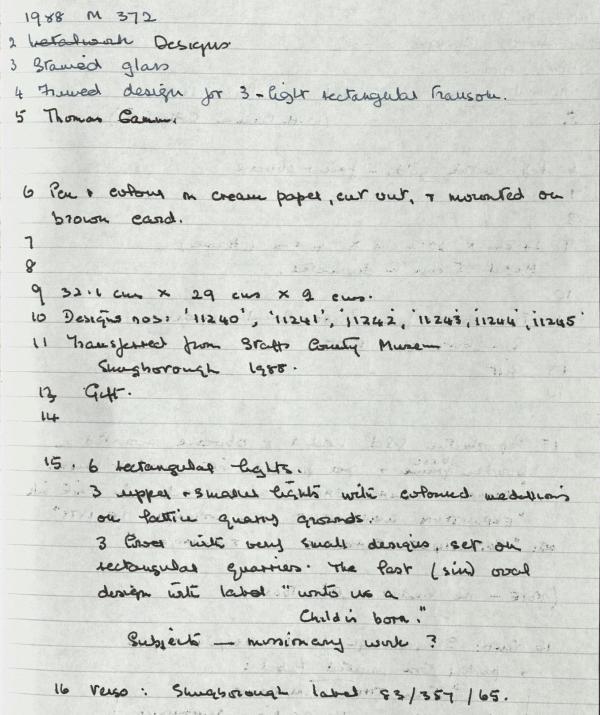 1988 M 372
2 Metalwork Designs
3 Stained glass
4 Framed design for 3-light rectangular Transom.
5 Thomas Camm.
6 Pen + colour on cream paper, cut out, + mounted on
brown card.
7
8
9 32.1 cms × 29 cms × 2 cms.
10 Designs nos: '11240', '11241', '11242, '11243, 11244', 11245'
11 Transferred from Staffs County Museum
Shugborough 1988.
13 Gift.
14
15. 6 rectangular lights.
3 upper + smaller lights with coloured medallions
on lattice quarry grounds.
3 lower with very small designs, set on
rectangular quarries. The last (sin) oval
design with label "unto us a
Child is born."
Subjects — missionary work ?
16 Verso : Shugborough label 83/357/65.